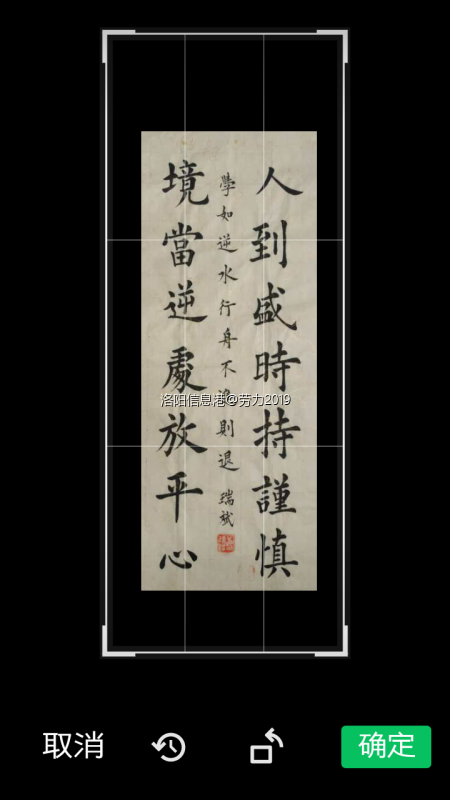 人到盛時持謹慎
學如逆水行舟不進則退
瑞斌
境當逆處放平心
洛阳信息港@劳力2019
取消
确定